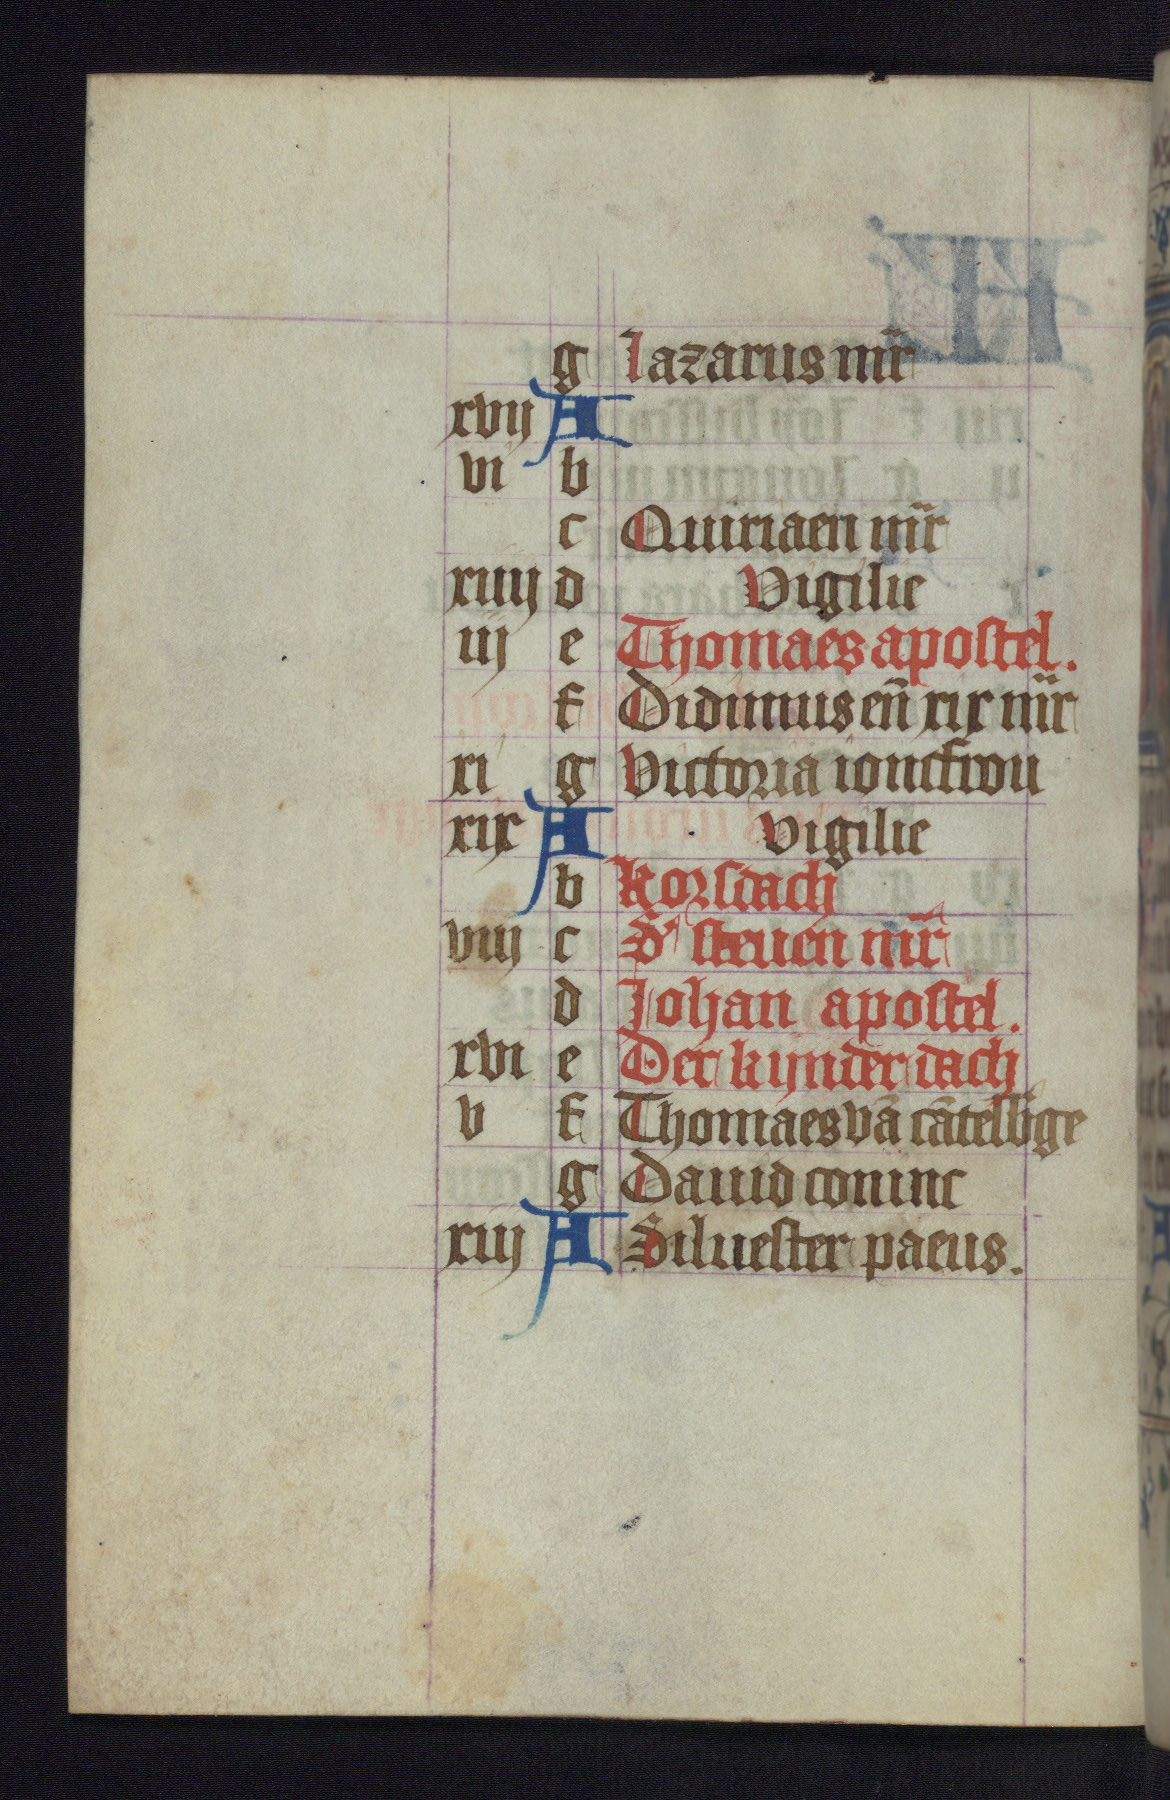 g lazarus mr̄
xvij A
vi b
c Quiriaen mr̄
xiiij d Vigilie
iij e Thomaes apostel.
f Didimus en̄ xix mr̄
xi g Victoria ioncfrou
xix A vigilie
b korsdach
viij c S' steuen mr̄
d Johan apostel.
xvi e Der kijnder dach
v f Thomaes vā cātelb̄ge
g Dauid coninc
xiij A Siluester paeus.